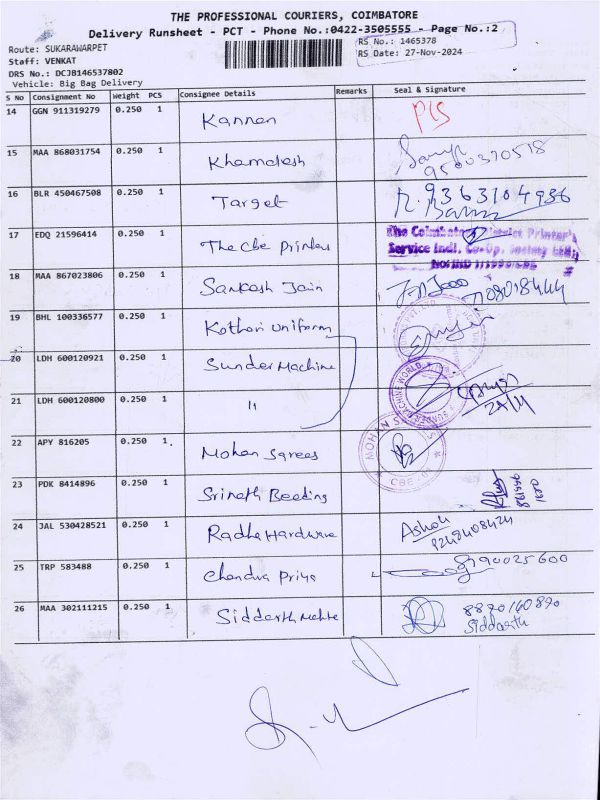 THE PROFESSIONAL COURIERS, COIMBATORE
Delivery Runsheet - PCT - Phone No.:0422-3505555 - Page No.:2
Route: SUKARAWARPET
RS No.: 1465378
Staff: VENKAT
RS Date: 27-Nov-2024
DRS No.: DCJB146537802
Vehicle: Big Bag Delivery
S No Consignment No Weight PCS Consignee Details Remarks Seal & Signature
14 GGN 911319279 0.250 1 Kannan
15 MAA 868031754 0.250 1 Khamalesh 9500370518
16 BLR 450467508 0.250 1 Target 9363104936
17 EDQ 21596414 0.250 1 The Cbe Printers The Coimbatore District Printer's
Service Indl. Co-Op. Society
18 MAA 867023806 0.250 1 Santosh Jain
19 BHL 100336577 0.250 1 Kothari Uniform
20 LDH 600120921 0.250 1 Sunder Machine SUNDER MACHINE WORLD
21 LDH 600120800 0.250 1 11
22 APY 816205 0.250 1 Mohan Sarees MOHAN CBE
23 PDK 8414896 0.250 1 Srinath Beeding
24 JAL 530428521 0.250 1 Radha Hardware Ashok
25 TRP 583488 0.250 1 Chandra Priya 8190025600
26 MAA 302111215 0.250 1 Siddarth Mehte 8870160870
Siddarth